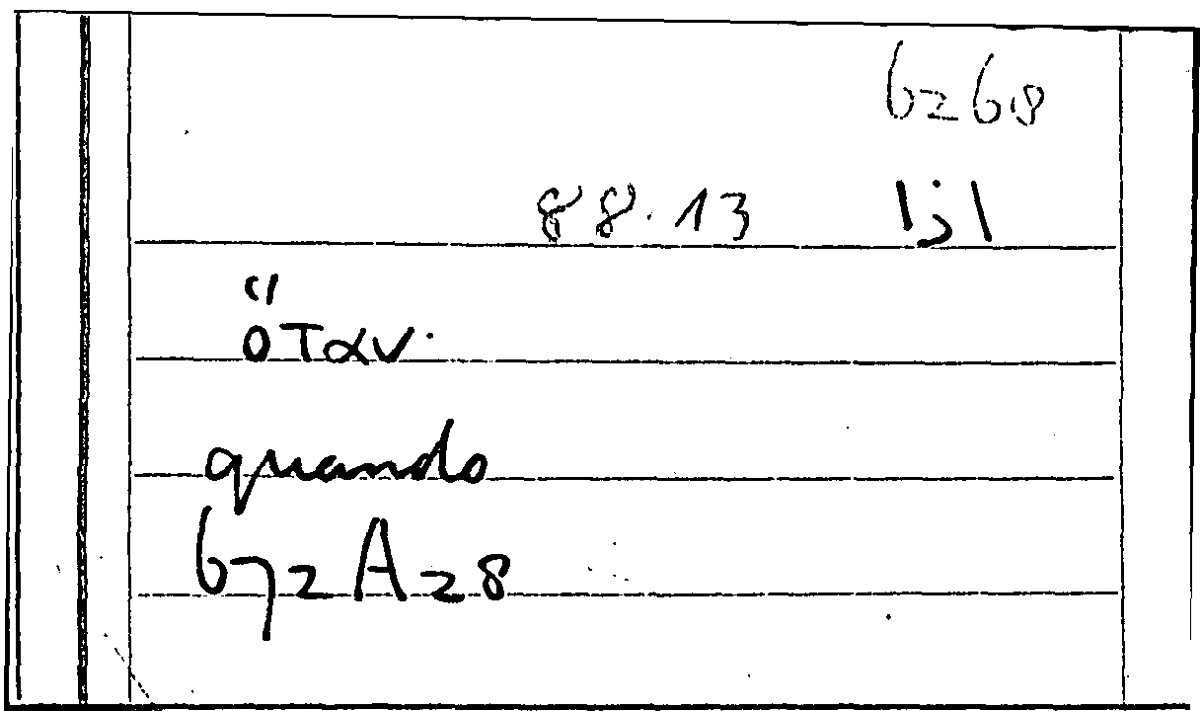 6268
88.13 اذا
ὅταν.
quando
672A28